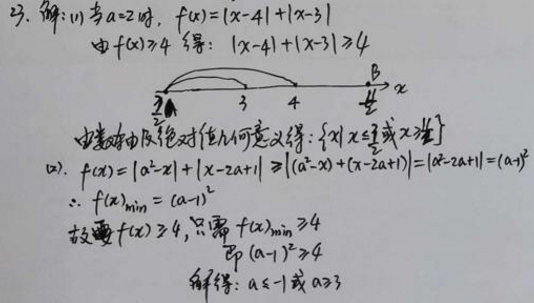 23. 解:(1) 当a=2时, f(x)=|x-4|+|x-3|
由f(x)≥4 得: |x-4|+|x-3|≥4
3/2 A 3 4 B 11/2 x
由数轴及绝对值几何意义得:{x|x≤3/2或x≥11/2}
(2). f(x)=|a²-x|+|x-2a+1|≥|(a²-x)+(x-2a+1)|=|a²-2a+1|=(a-1)²
∴ f(x)min=(a-1)²
故要f(x)≥4,只需f(x)min≥4
即(a-1)²≥4
解得: a≤-1或a≥3